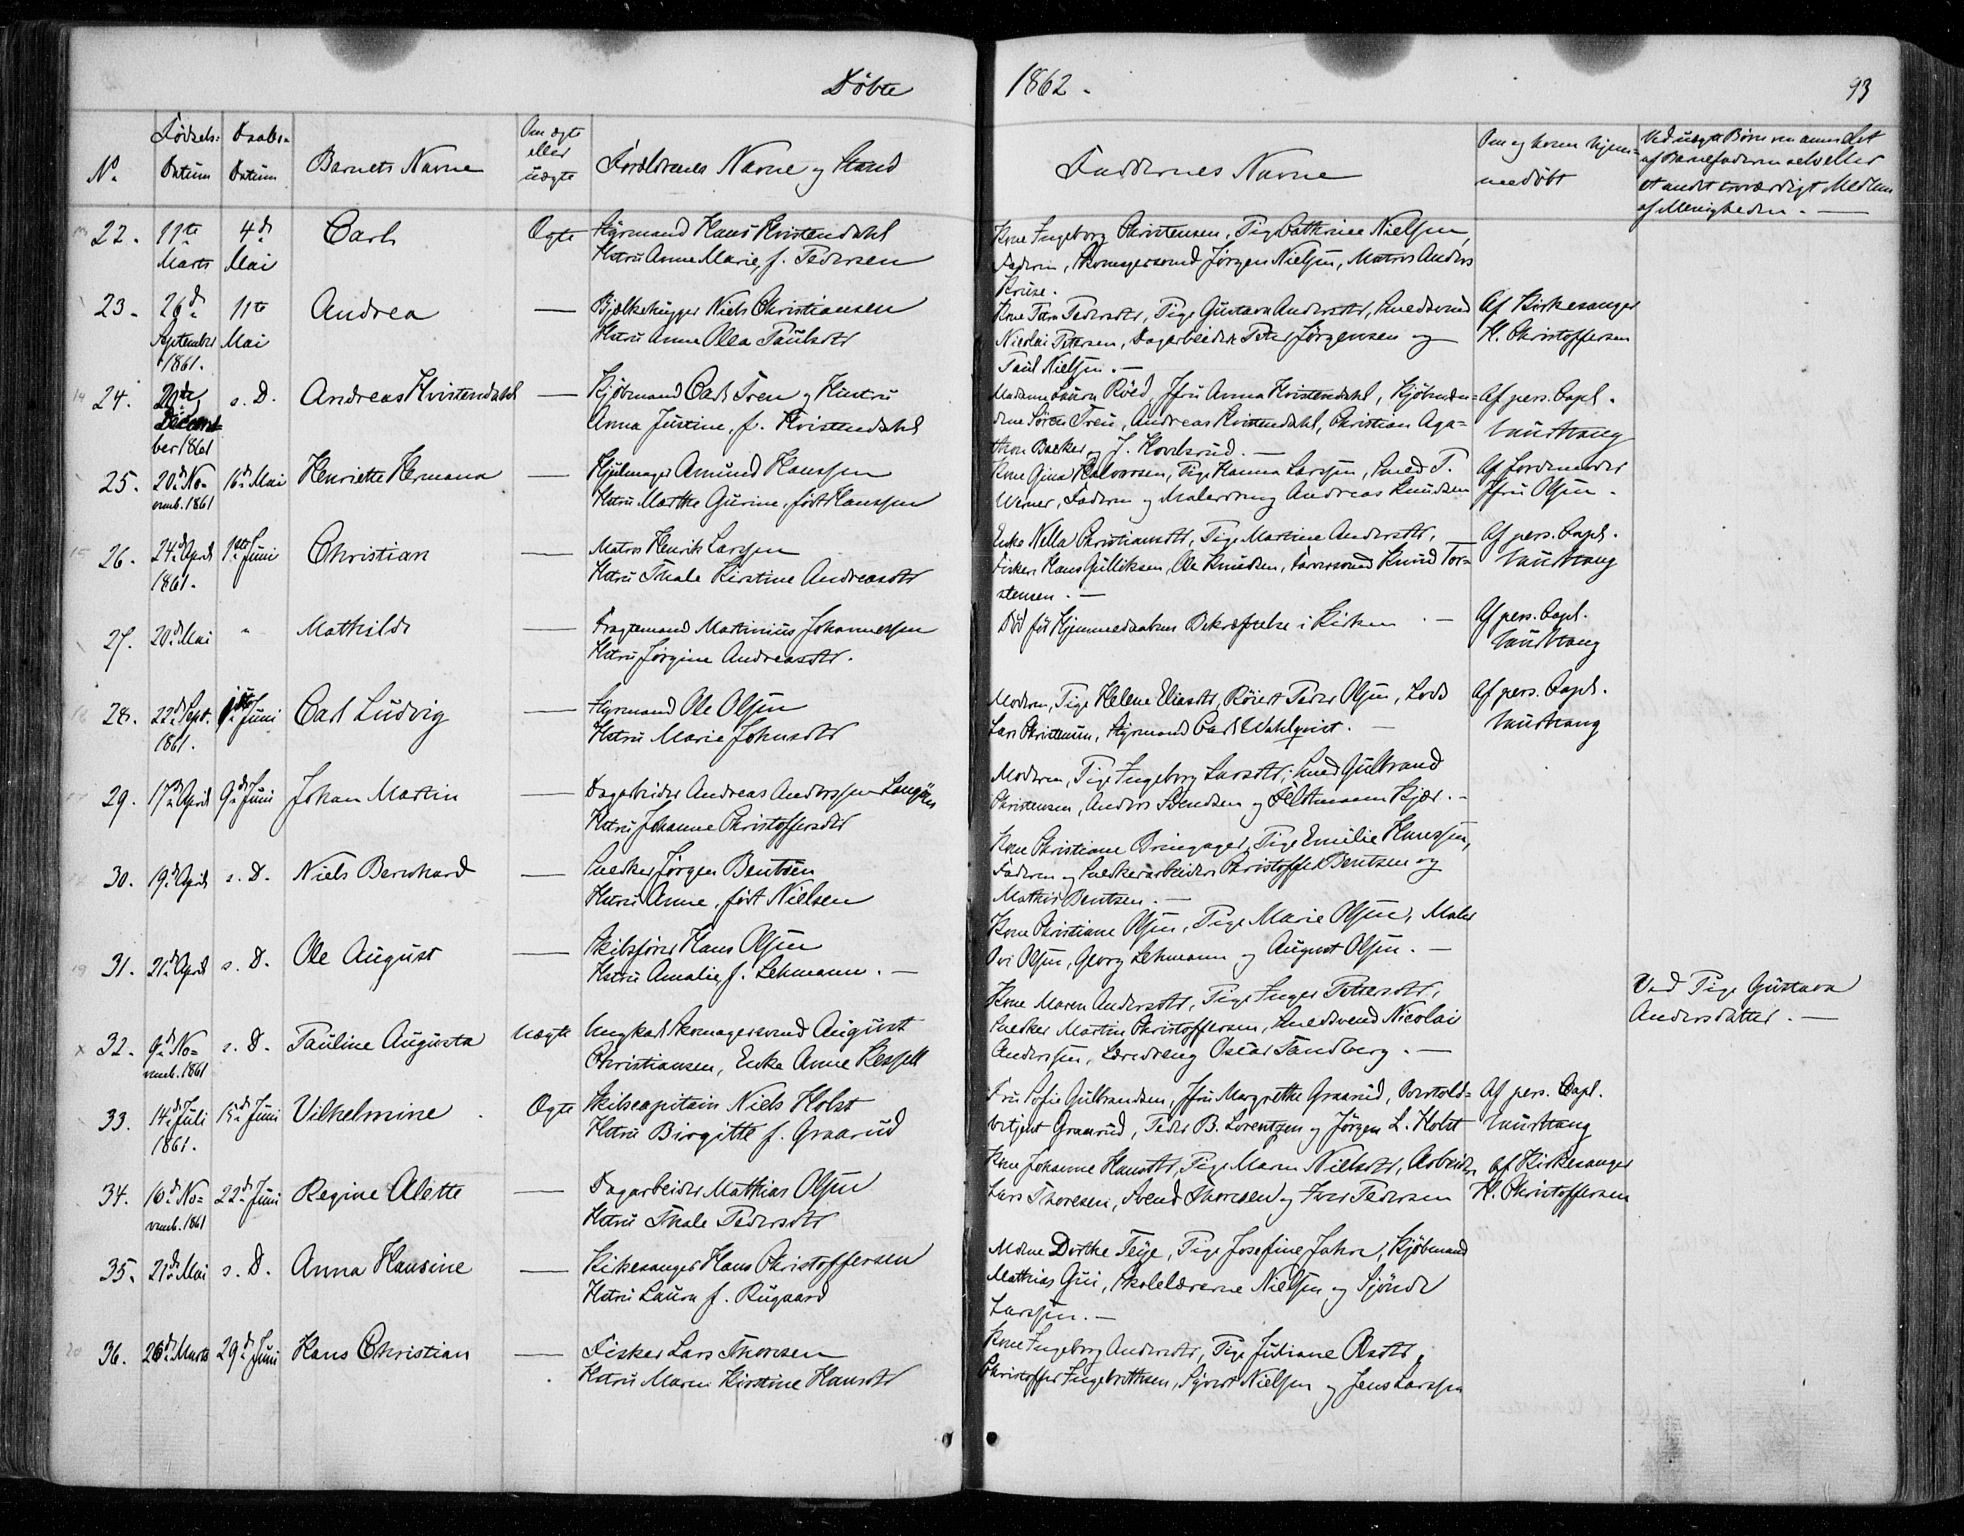 Døbte 1862. 93
No. Fødsels-Datum Daabs-Datum Barnets Navne Om ægte eller uægte Forældrenes Navne og Stand Faddernes Navne Om og hvem hjemmedøbt
22. 11te Marts 4d. Mai Carl Ægte Styrmand Hans Kvistendahl
Hstru Anne Marie, f. Pedersen
Kone Ingeborg Christensen, Pige Cathrine Nielsen,
Faderen, Skomagersvend Jørgen Nielsen, Matros Anders
Kruse.
23. 26d. September 1861. 11te Mai Andrea — Bjælkehugger Niels Christiansen
Hstru Anne Olea Paulsdtr
Pige Gustava Andersdtr, Smedsvend
Nicolai Petersen, Dagarbeider Peter Jørgensen og
Paul Nielsen. —
Af Kirkesanger
H. Christoffersen
24. December 1861 s. D. Andreas Kvistendahl — Kjøbmand Carl Tren og Hustru
Anna Justine, f. Kvistendahl
Madam Laura Røed, Jfru Anna Kvistendahl, Kjøbmæn-
dene Søren Tren, Andreas Kvistendahl, Christian Aga-
thon Backer og J.
Af pers. Capl.
25. 20d. Novemb. 1861 16d. Mai Henriette Hermana — Hjulmager Amund Hanssen
Hstru Marthe Gurine, født Hanssen
Kone Gina Halvorsen, Pige Hanna Larsen, Smed T.
Werner, Faderen og Malerdreng Andreas Knudsen
Af Jordemoder
Jfru Olsen.
26. 24d. April 1861. 1ste Juni Christian — Matros Henrik Larsen
Hstru Thale Kirstine Andreasdtr
Enke Nella Christiansdtr, Pige Martine Andersdtr,
Fisker Hans Gulliksen, Ole Knudsen, Farversvend Knud Tor-
stensen. —
Af pers. Capl.
27. 20d. Mai " Mathilde — Fragtemand Martinius Johannessen
Hstru Jørgine Andreasdtr.
Død før Hjemmedaabens Bekræftelse i Kirken. —
Af pers. Capl.
28. 22d. Sept. 1861. 1ste Juni Carl Ludvig — Styrmand Ole Olsen
Hstru Marie Johnsdtr
Moderen, Pige Helene Eliasdtr, Peder Olsen, Lods
Lars Christensen, Styrmand Carl Wahlqvist. —
Af pers. Capl.
29. 17d. April 9d. Juni Johan Martin — Dagarbeider Andreas Anderssen Langøen
Hstru Johanne Christoffersdtr
Moderen, Pige Ingeborg Larsdtr, Smed Gulbrand
Christensen, Anders Svendsen og Feltmann Kjær. —
30. 19d. April s. D. Niels Bernhard — Snedker Jørgen Bentsen
Hstru Anne, født Nielsen
Kone Christiane Pige Emilie Hanssen,
Faderen og Snedkerarbeider Christoffer Bentsen og
Mathis Bentsen. —
31. 21d. April s. D. Ole August — Skibsfører Hans Olsen
Hstru Amalie, f. Lehmann. —
Kone Christiane Olsen, Pige Marie Olsen, Maler
Olsen, Georg Lehmann og August Olsen. —
32. 9d. Novemb. 1861 s. D. Pauline Augusta Uægte Ungkarl Skomagersvend August
Christiansen, Enke Anne Kessell
Kone Maren Andersdtr, Pige Inger Petersdtr,
Snedker Martin Christoffersen, Smedsvend Nicolai
Anderssen, Læredreng Oscar Sandberg. —
Ved Pige Gustava
Andersdatter. —
33. 14d. Juli 1861. 15d. Juni Vilhelmine Ægte Skibscapitain Niels Holst
Hstru Birgitte f. Graarud
Fru Sofie Gulbrandsen, Jfru Margrethe Graarud, Overtold-
betjent Graarud, Peder B. Lorentzen og Jørgen L. Holst
Af pers. Capl.
34. 10d. Novemb. 1861 22d. Juni Regine Alette — Dagarbeider Matthias Olsen
Hstru Thale Pedersdtr
Kone Johanne Hansdtr, Pige Maren Nielsdtr, Arbeider
Lars Thoresen, Svend Thoresen og Iver Pedersen
Af Kirkesanger
H. Christoffersen
35. 21d. Mai s. D. Anna Hansine — Kirkesanger Hans Christoffersen
Hstru Laura f. Rugaard
Dorthe Teye, Pige Josefine Jahn, Kjøbmand
Mathias Skolelærerne Nielsen og Sjønde
Larssen. —
36. 20d. Marts 29d. Juni Hans Christian — Fisker Lars Thoresen
Hstru Maren Kirstine Hansdtr
Kone Ingeborg Andersdtr, Pige Juliane Olsdtr,
Christoffer Ingebrethsen, Syvert Nielsen og Jens Larssen